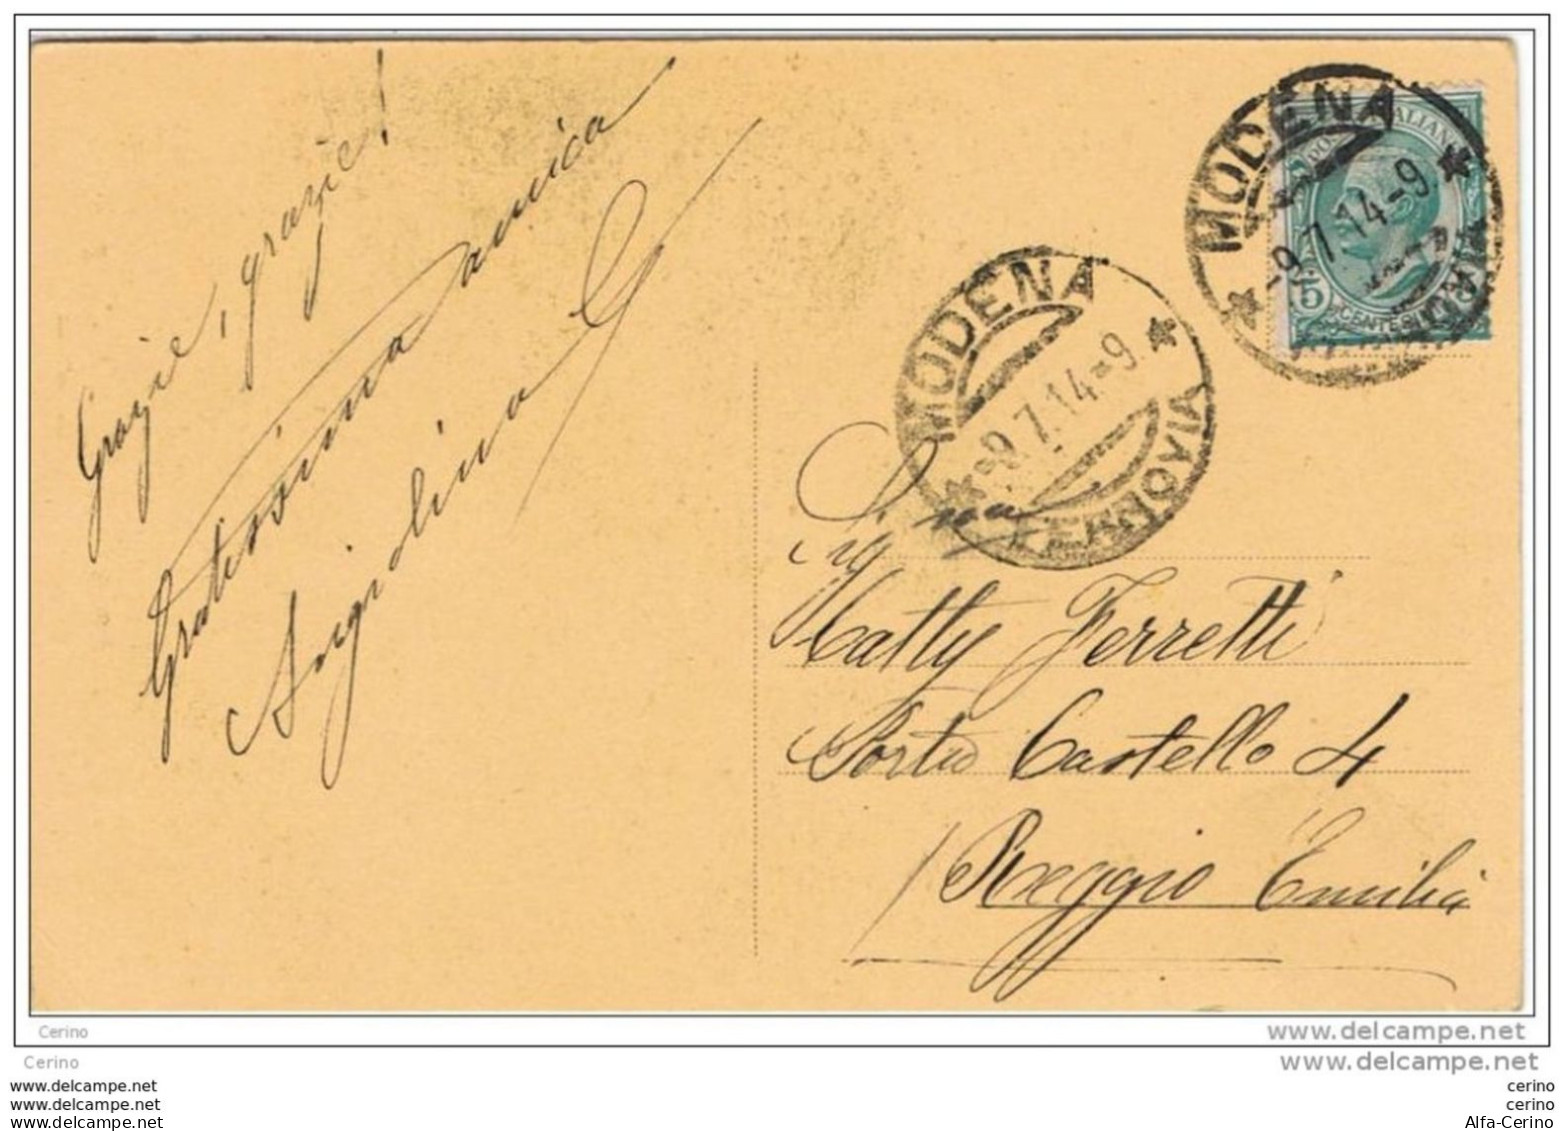 Grazie, grazie!
Gratissima amica
Angiolina G
MODENA
-9.7.14-9
FERROVIA
MODENA
-9.7.14-9
FERROVIA
POSTE ITALIANE
5
CENTESIMI
Sig.na
Catty Ferretti
Porta Castello 4
Reggio Emilia
Cerino
www.delcampe.net
Cerino
www.delcampe.net
www.delcampe.net
cerino
www.delcampe.net
cerino
www.delcampe.net
Alfa-Cerino